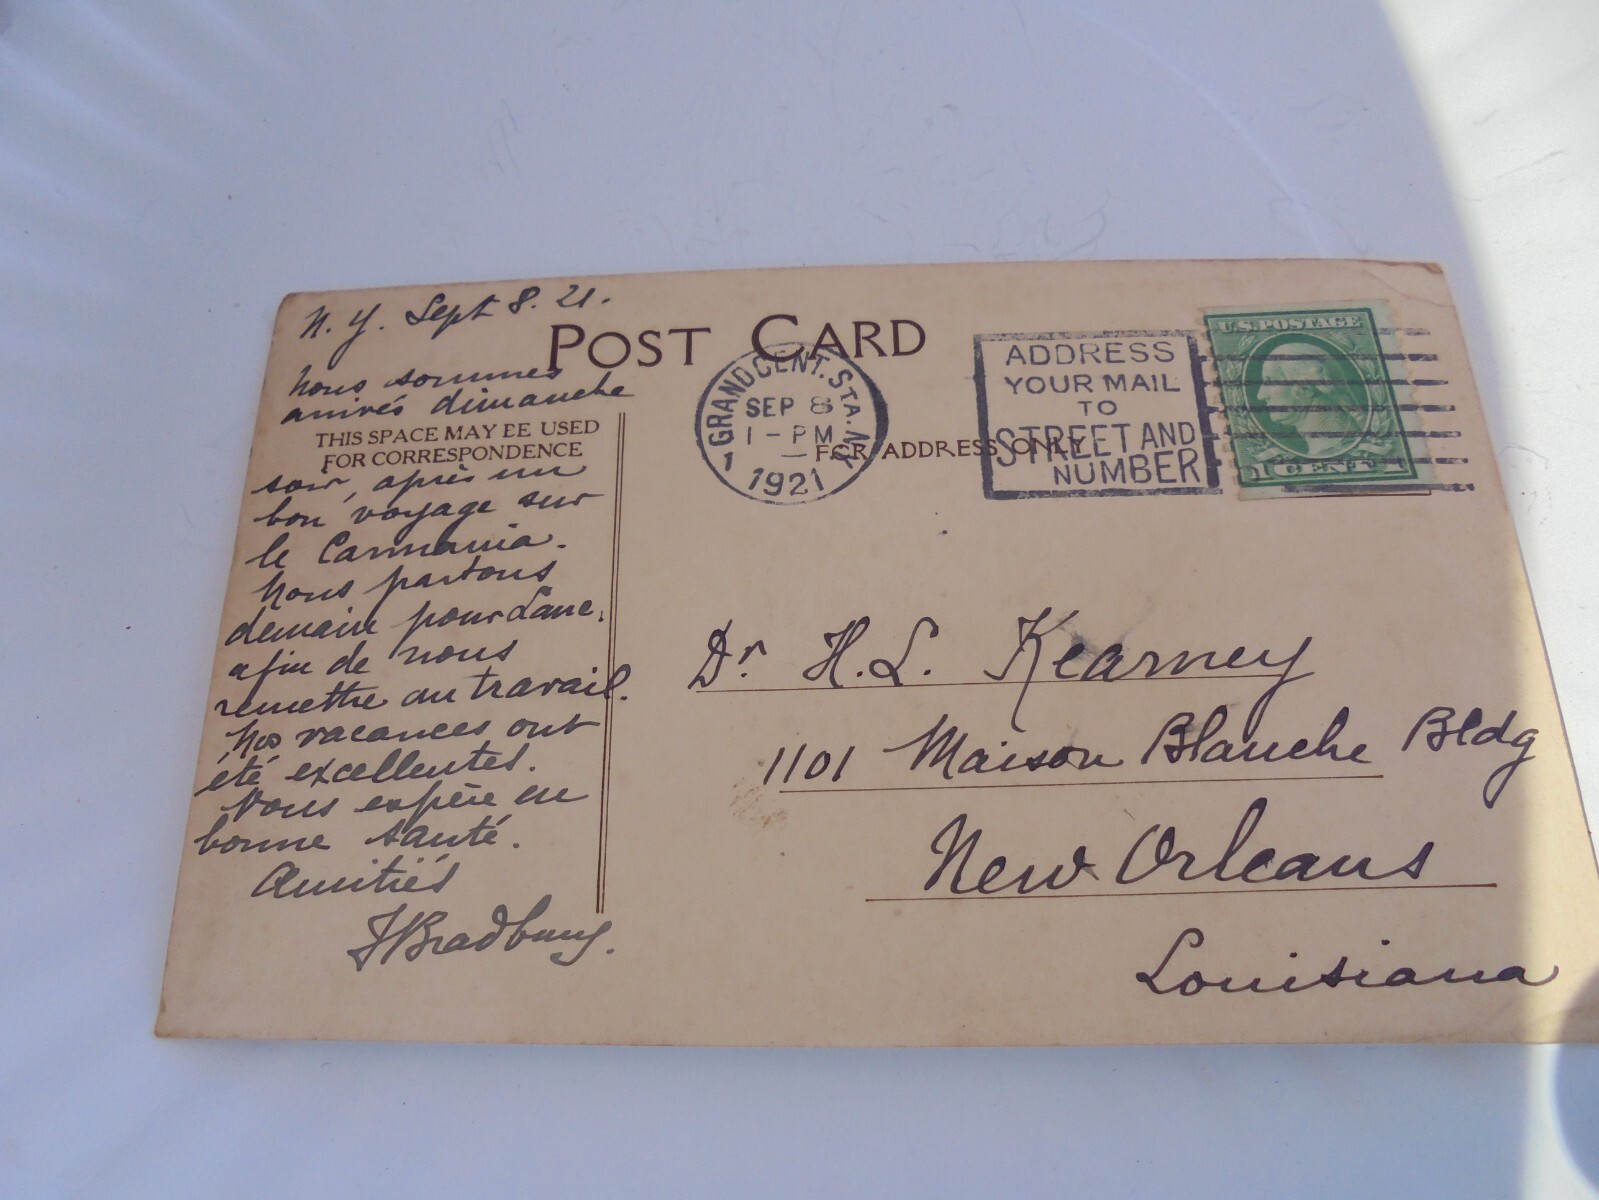 N. Y. Sept 8. 21.
POST CARD
Nous sommes
arrivés dimanche
THIS SPACE MAY BE USED
FOR CORRESPONDENCE
soir, après un
bon voyage sur
le Carmania.
Nous partons
demain pour
afin de nous
remettre au travail.
Nos vacances ont
été excellentes.
Vous espère en
bonne santé.
Amitiés
Bradbury.
GRAND CENT. STA. N.Y.
SEP 8
1 - PM
1921
1
ADDRESS
YOUR MAIL
TO
STREET AND
NUMBER
U.S. POSTAGE
1 CENT 1
FOR ADDRESS ONLY
Dr. H. L. Kearney
1101 Maison Blanche Bldg
New Orleans
Louisiana